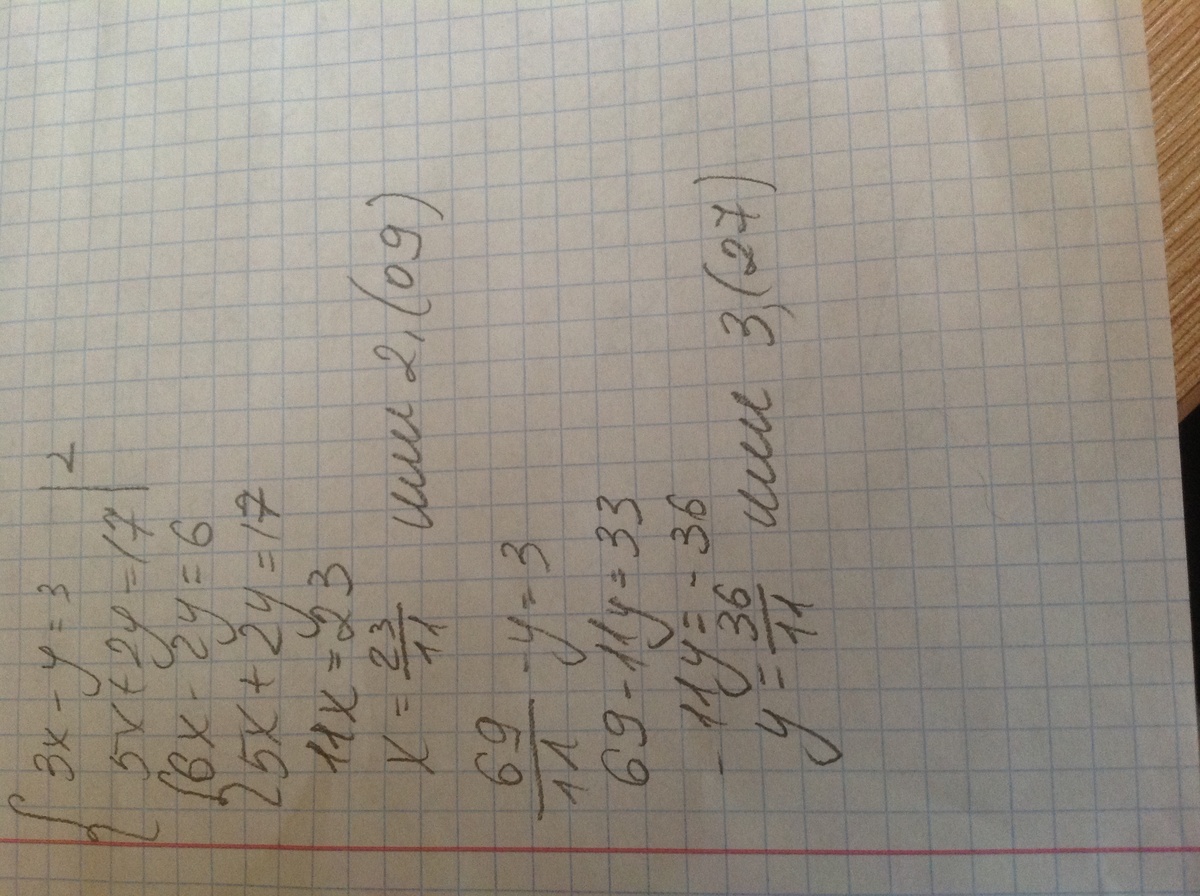 { 3x - y = 3 | 2
5x + 2y = 17 |
{ 6x - 2y = 6
5x + 2y = 17
11x = 23
x = 23/11 или 2,(09)
69/11 - y = 3
69 - 11y = 33
- 11y = - 36
y = 36/11 или 3,(27)